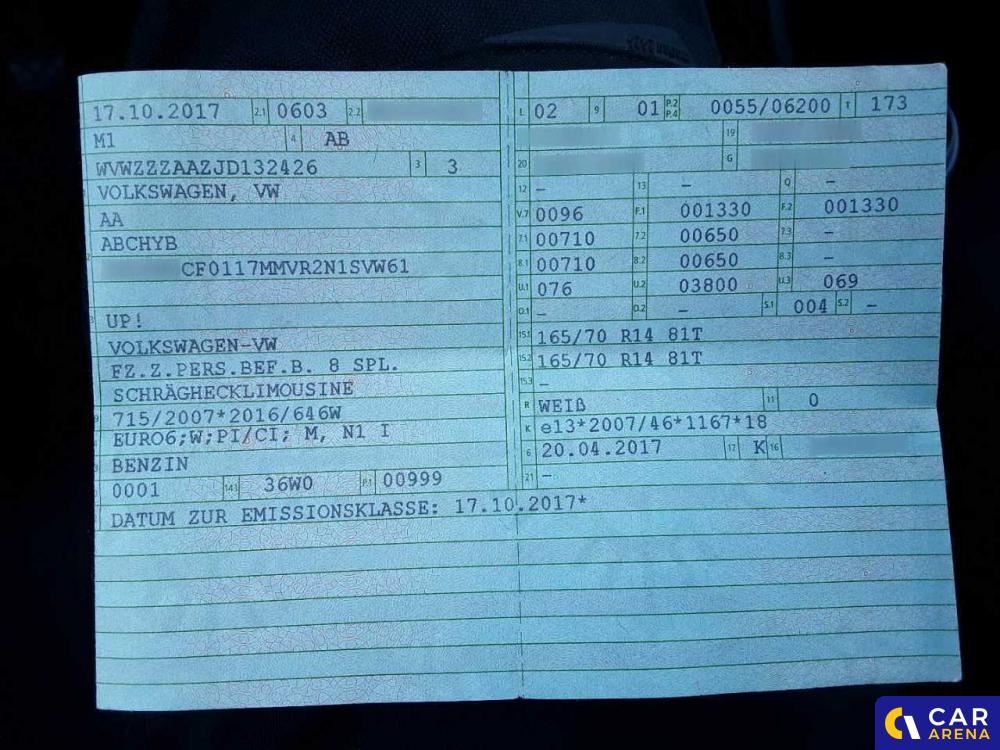 17.10.2017 2.1 0603 2.2
M1 4 AB
WVWZZZAAZJD132426 3 3
VOLKSWAGEN, VW
AA
ABCHYB
CF0117MMVR2N1SVW61
UP!
VOLKSWAGEN-VW
FZ.Z.PERS.BEF.B. 8 SPL.
SCHRÄGHECKLIMOUSINE
715/2007*2016/646W
EURO6;W;PI/CI; M, N1 I
BENZIN
0001 14.1 36W0 P.1 00999
DATUM ZUR EMISSIONSKLASSE: 17.10.2017*
L 02 9 01 P.2 P.4 0055/06200 T 173
19
20 G
12 – 13 – Q –
V.7 0096 F.1 001330 F.2 001330
7.1 00710 7.2 00650 7.3 –
8.1 00710 8.2 00650 8.3 –
U.1 076 U.2 03800 U.3 069
O.1 – O.2 – S.1 004 S.2 –
15.1 165/70 R14 81T
15.2 165/70 R14 81T
15.3 –
R WEIß 11 0
K e13*2007/46*1167*18
6 20.04.2017 17 K 16
21 –
CAR
ARENA